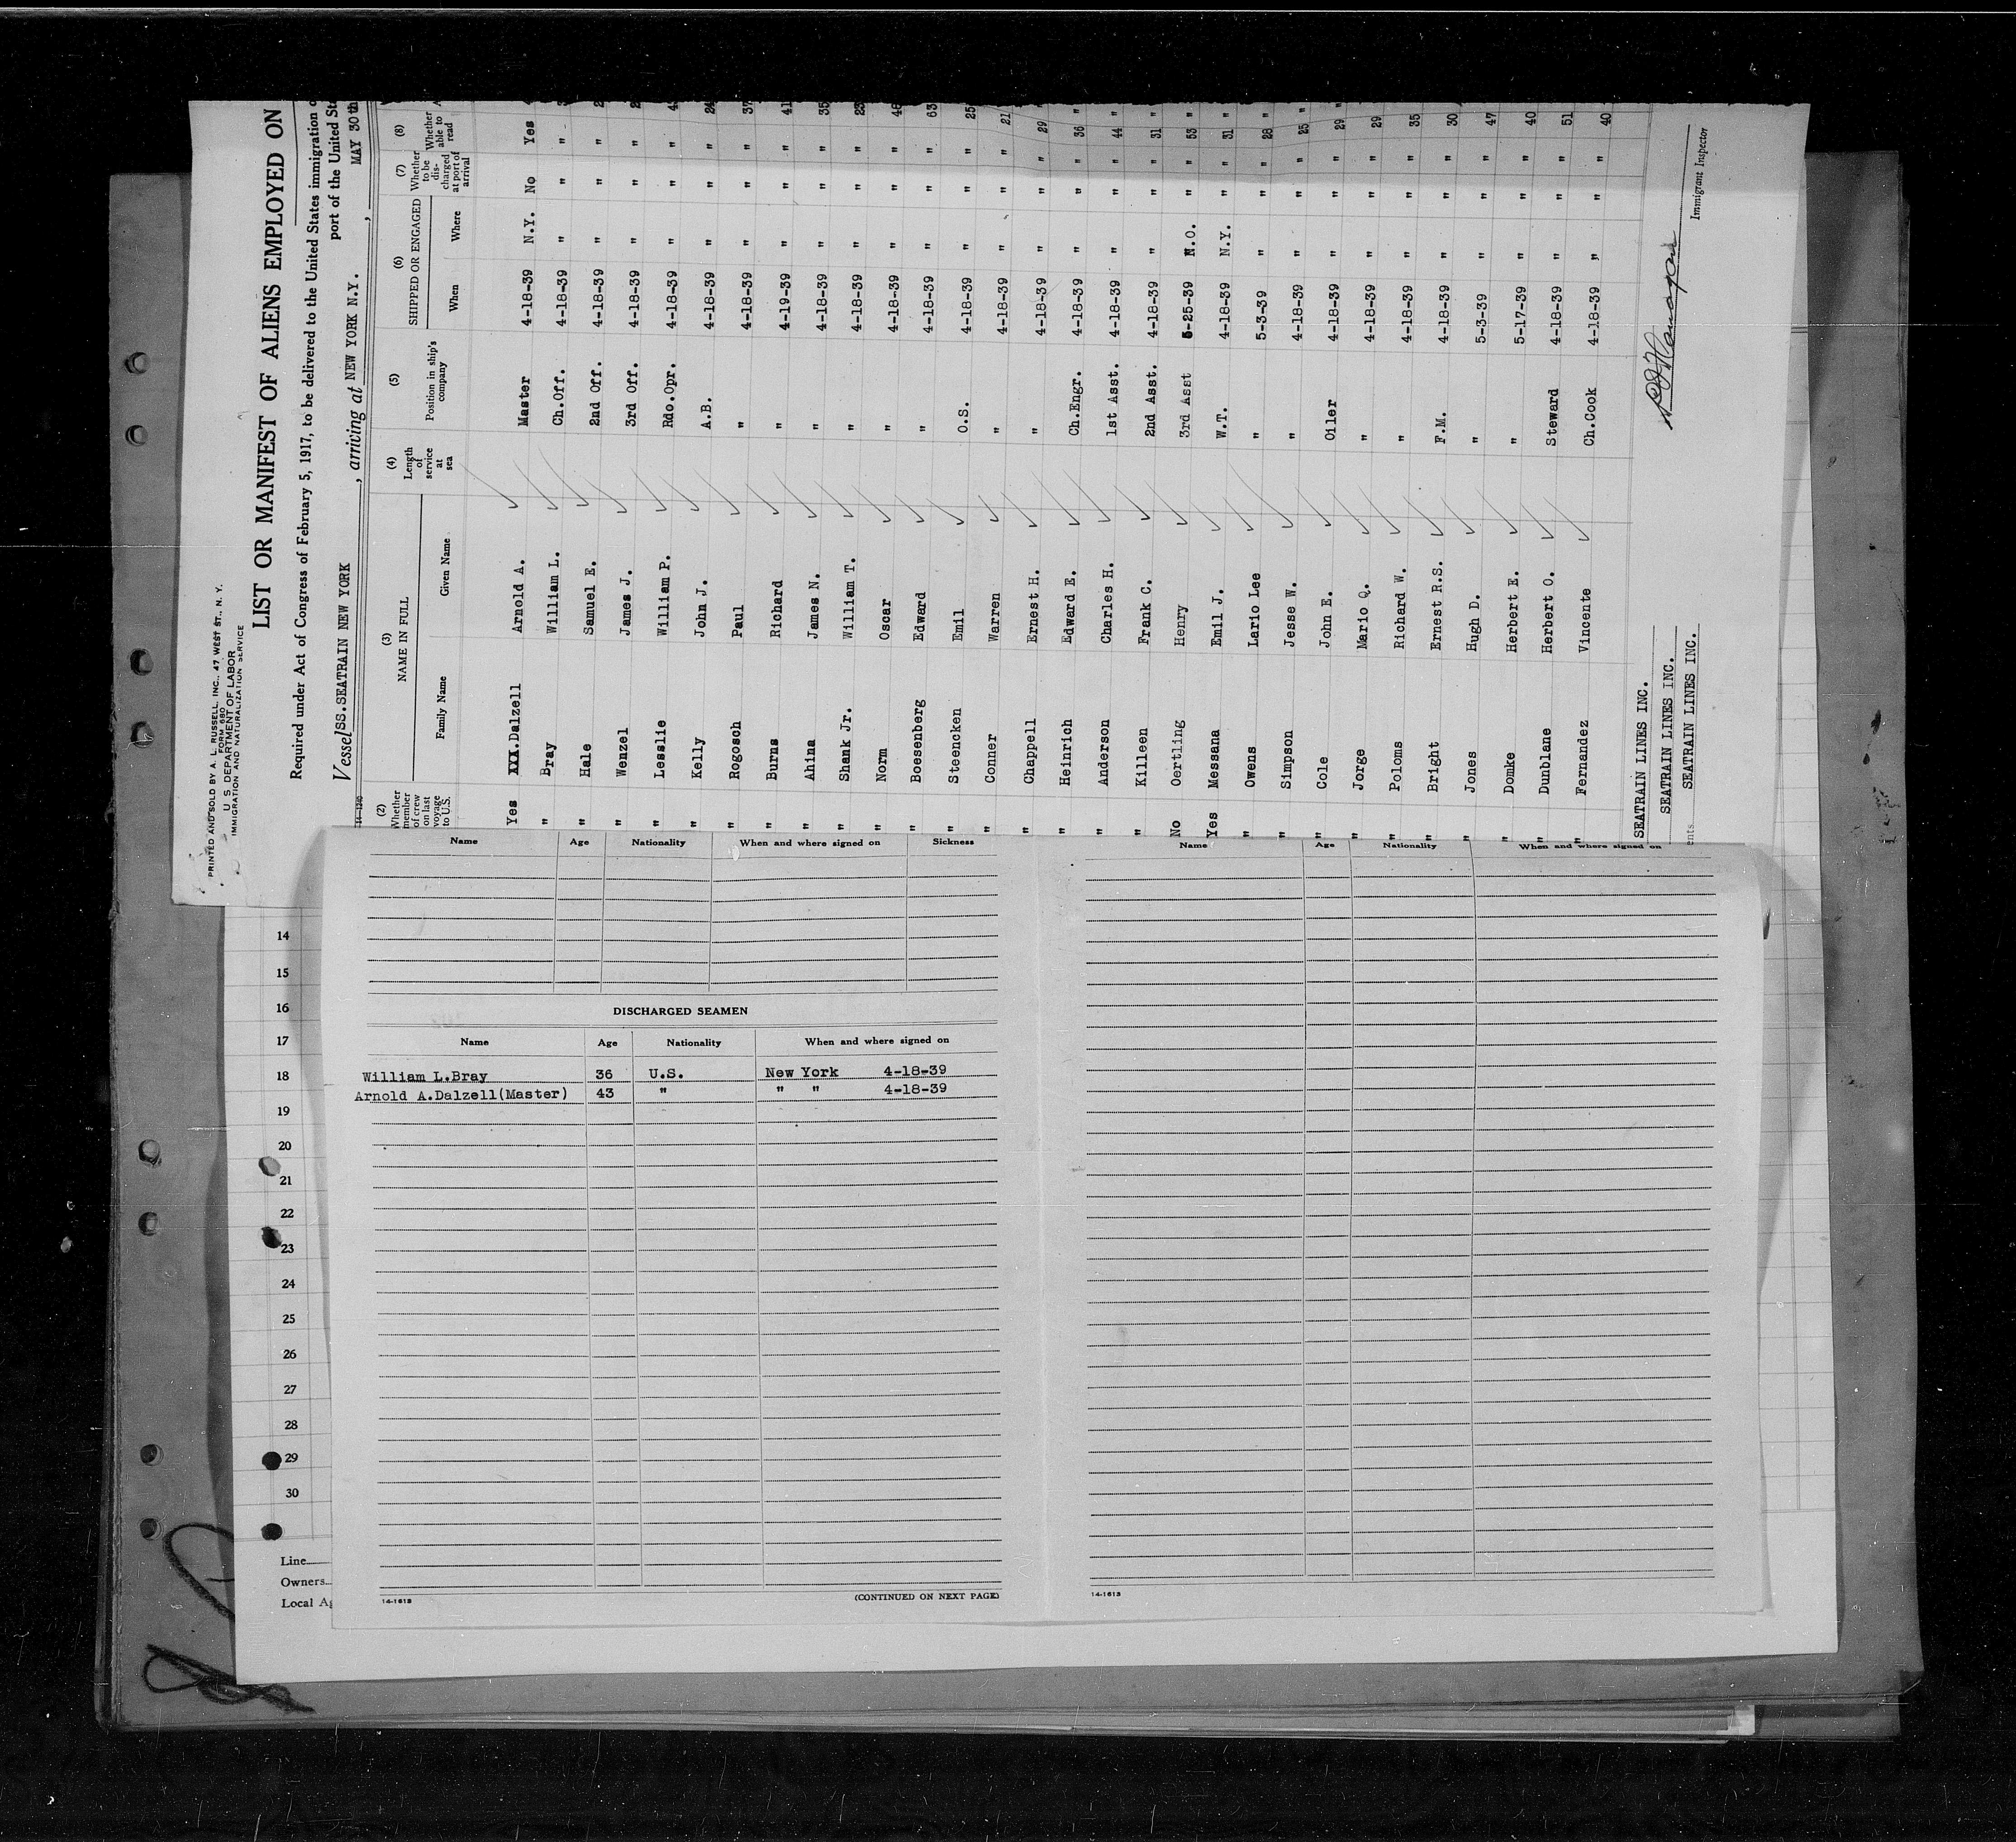 PRINTED AND SOLD BY A. L. RUSSELL, INC., 47 WEST ST., N. Y.
FORM 680
U. S. DEPARTMENT OF LABOR
IMMIGRATION AND NATURALIZATION SERVICE
LIST OR MANIFEST OF ALIENS EMPLOYED ON
Required under Act of Congress of February 5, 1917, to be delivered to the United States immigration
port of the United
Vessel SS.SEATRAIN NEW YORK , arriving at NEW YORK N.Y. , MAY 30th
14—1240
(2) Whether member of crew on last voyage to U.S. (3) NAME IN FULL Family Name Given Name (4) Length of service at sea (5) Position in ship's company (6) SHIPPED OR ENGAGED When Where (7) Whether to be discharged at port of arrival (8) Whether able to read
Yes XXX.Dalzell Arnold A. Master 4-18-39 N.Y. No Yes
" Bray William L. Ch.Off. 4-18-39 " " "
" Hale Samuel E. 2nd Off. 4-18-39 " " "
" Wenzel James J. 3rd Off. 4-18-39 " " "
" Lesslie William P. Rdo.Opr. 4-18-39 " " "
" Kelly John J. A.B. 4-18-39 " " " 24
" Rogosch Paul " 4-18-39 " " " 37
" Burns Richard " 4-19-39 " " " 41
" Ahina James N. " 4-18-39 " " " 35
" Shank Jr. William T. " 4-18-39 " " " 23
" Norm Oscar " 4-18-39 " " " 46
" Boesenberg Edward " 4-18-39 " " " 63
" Steencken Emil O.S. 4-18-39 " " " 25
" Conner Warren " 4-18-39 " " " 21
" Chappell Ernest H. " 4-18-39 " " " 29 "
" Heinrich Edward E. Ch.Engr. 4-18-39 " " " 36 "
" Anderson Charles H. 1st Asst. 4-18-39 " " " 44 "
" Killeen Frank C. 2nd Asst. 4-18-39 " " " 31 "
No Oertling Henry 3rd Asst 5-25-39 N.O. " " 53 "
Yes Messana Emil J. W.T. 4-18-39 N.Y. " " 31 "
" Owens Lario Lee " 5-3-39 " " " 28 "
" Simpson Jesse W. " 4-18-39 " " " 25 "
" Cole John E. Oiler 4-18-39 " " " 29 "
" Jorge Mario Q. " 4-18-39 " " " 29
" Poloms Richard W. " 4-18-39 " " " 35
" Bright Ernest R.S. F.M. 4-18-39 " " " 30
" Jones Hugh D. " 5-3-39 " " " 47
" Domke Herbert E. " 5-17-39 " " " 40
" Dunblane Herbert O. Steward 4-18-39 " " " 51
" Fernandez Vincente Ch.Cook 4-18-39 " " " 40
SEATRAIN LINES INC.
SEATRAIN LINES INC.
SEATRAIN LINES INC.
Immigrant Inspector
Name Age Nationality When and where signed on Sickness
DISCHARGED SEAMEN
Name Age Nationality When and where signed on
William L.Bray 36 U.S. New York 4-18-39
Arnold A.Dalzell(Master) 43 " " " 4-18-39
14-1613 (CONTINUED ON NEXT PAGE)
Name Age Nationality When and where signed on
14-1613
14
15
16
17
18
19
20
21
22
23
24
25
26
27
28
29
30
Line
Owners
Local